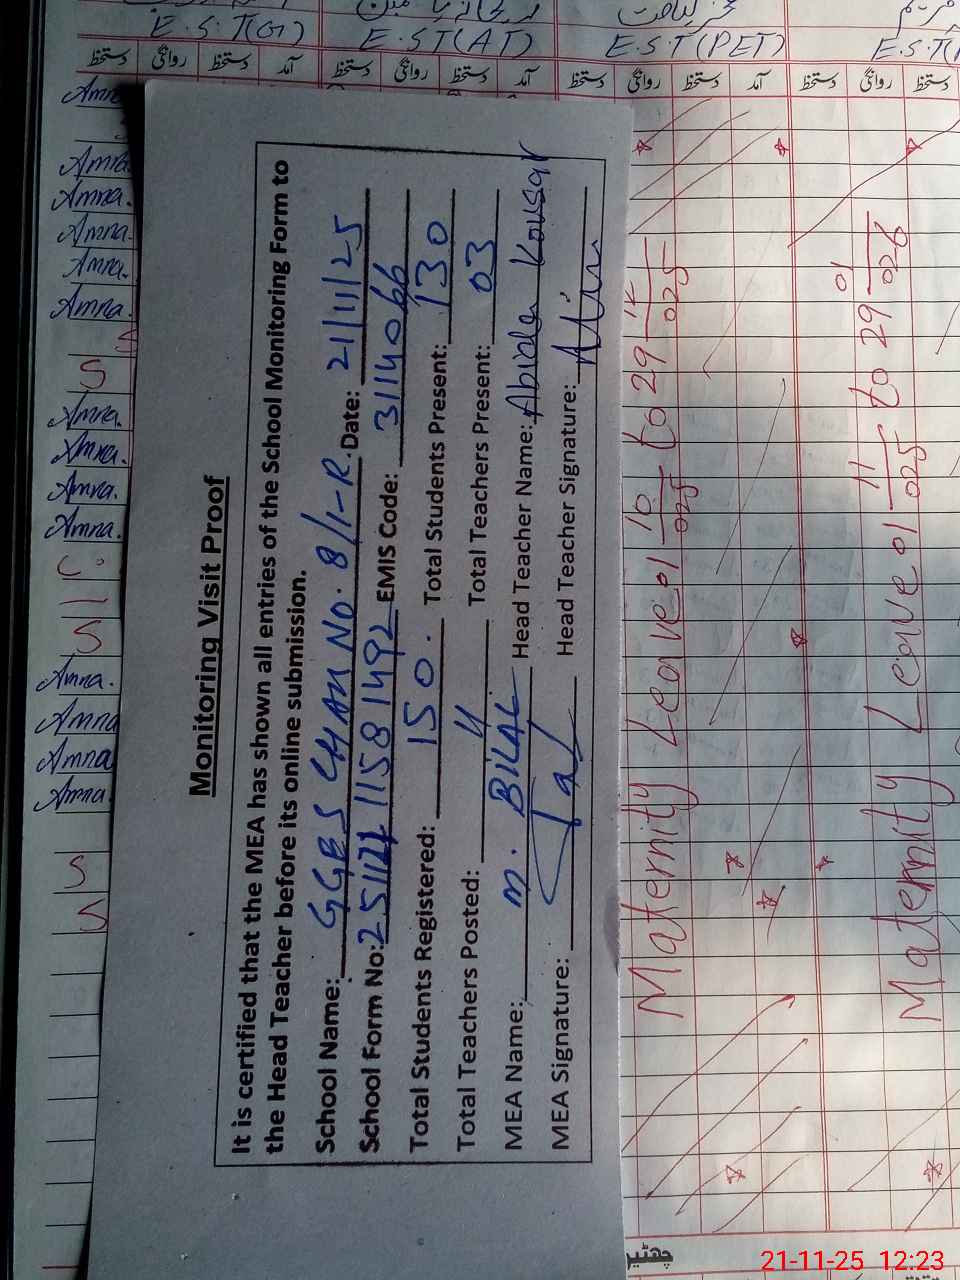 E.S.T(G) E.S.T(AT) E.S.T(PET)
دستخط روانگی دستخط آمد دستخط روانگی دستخط آمد دستخط روانگی دستخط آمد دستخط روانگی دستخط
Monitoring Visit Proof
It is certified that the MEA has shown all entries of the School Monitoring Form to
the Head Teacher before its online submission.
School Name: GGES CHAK No. 8/1-R. Date: 21/11/25
School Form No: EMIS Code: 3114066
Total Students Registered: 150. Total Students Present: 130
Total Teachers Posted: Total Teachers Present: 03
MEA Name: M. BILAL Head Teacher Name: Abida Kousar
MEA Signature: Head Teacher Signature:
Amna.
Amna.
Amna.
Amna.
Amna.
Amna.
S
Amna.
Amna.
Amna.
Amna.
C.
L
S
Amna.
Amna
Amna
Amna.
S
S
Maternity Leave 01 10/025 to 29
Maternity Leave 01 11/025 to 29 01/026
21-11-25 12:23